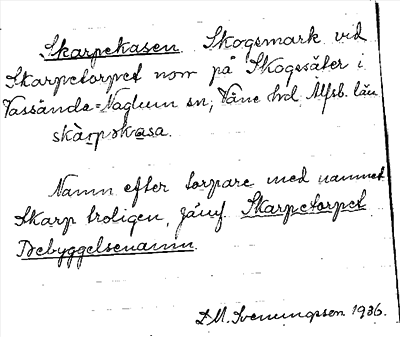 Skarpekasen Skogsmark vid
Skarpetorpet norr på Skogssäter i
Vassända-Naglum sn, Väne hd Älfsb. län
skàrpəkasa.
Namn efter torpare med namnet
Skarp troligen, jämf. Skarpetorpet
Bebyggelsenamn.
D.M. Svenungsson 1936.